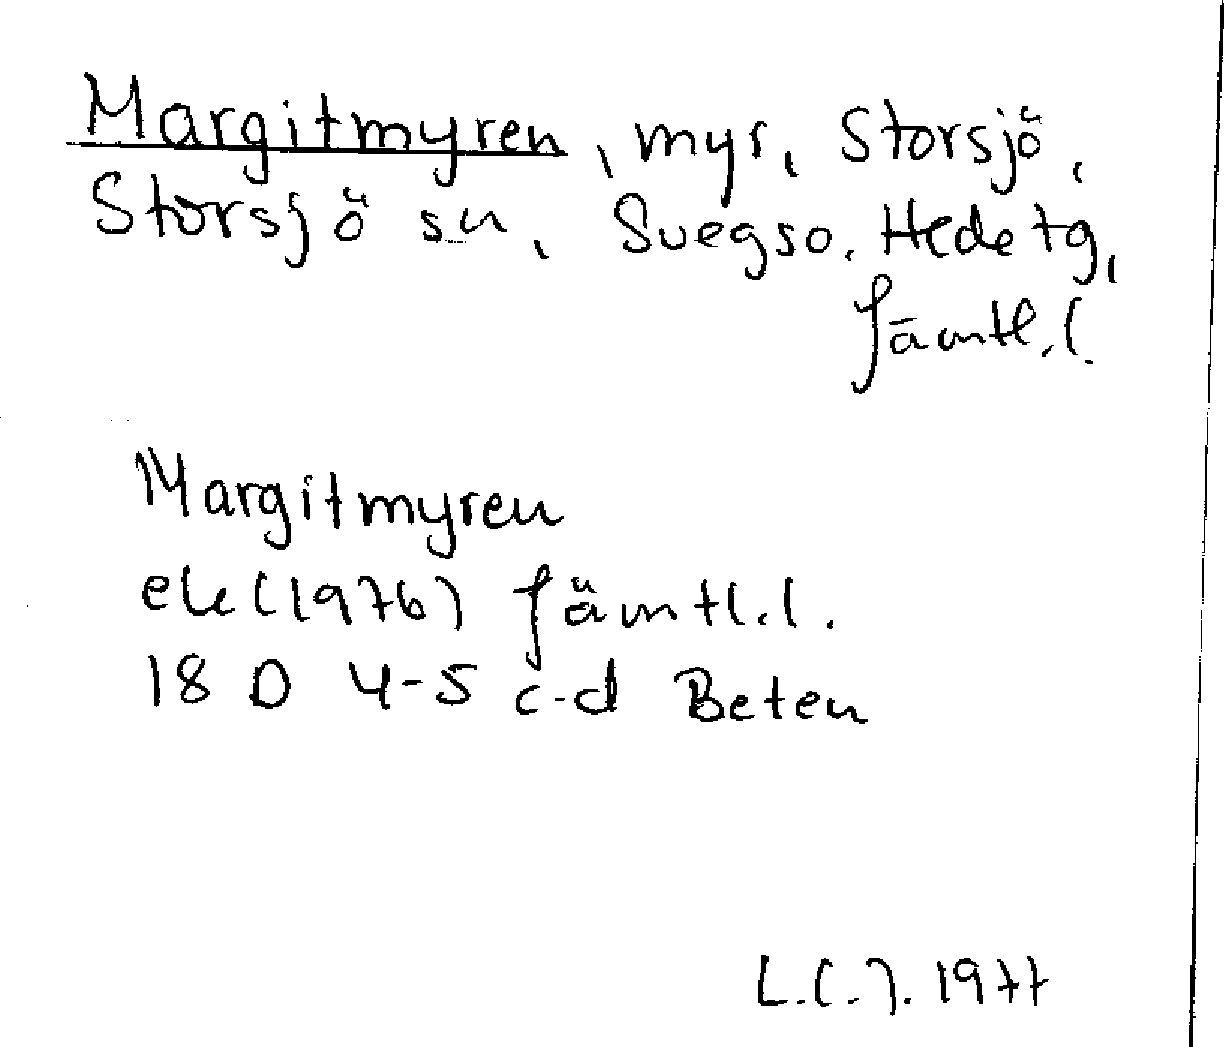 Margitmyren, myr, Storsjö,
Storsjö sn, Svegso. Hede tg,
Jämtl.l.
Margitmyren
ek (1976) Jämtl.l.
18 D 4-5 c-d Beten
L.C.J. 1977